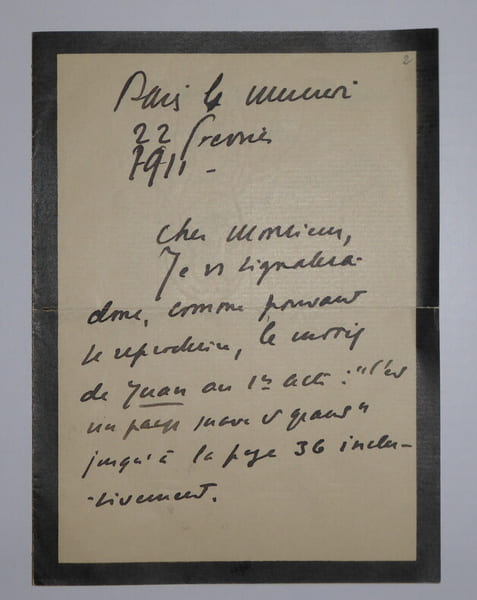 2
Paris le mercredi
22 fevrier
1911 -
Cher Monsieur,
Je vs signalerai
donc, comme pouvant
se reproduire, le motif
de Juan au 1er acte : "C'est
un pays suave et grand"
jusqu'à la page 36 inclu-
-sivement.